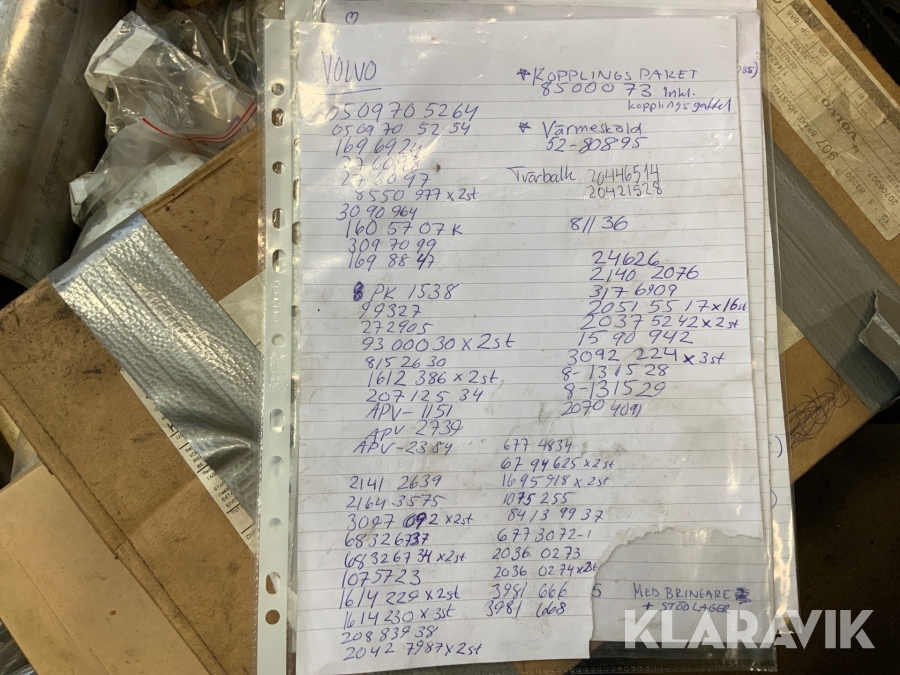 VOLVO
0509705264
050970 5254
1696924
272097
8550 977 x 2st
3090964
1605707K
3097099
1698847
8PK 1538
99327
272905
9300030 x 2st
8152630
1612 386 x 2st
207125 34
APV-1151
APV 2739
APV-2384
2141 2639
2164 3575
3097 092 x 2st
68326737
68326734 x 2st
1075723
1614 229 x 2st
1614 230 x 3st
20883938
2042 7987 x 2st
* KOPPLINGSPAKET
8500073 inkl.
kopplingsgaffel
* Värmesköld
52-80895
Tvärbalk 20446514
20421528
81136
24626
2140 2076
3176909
2051 5517 x 16st
2037 5242 x 2st
1590 942
3092 224 x 3st
8-131528
8-131529
2070 4091
677 4834
67 94625 x 2st
1695918 x 2st
1075 255
8413 9937
6773072-1
2036 0273
2036 0274 x 2st
3981 666
3981 668
MED BRINGARE
+ STÖDLAGER
VOLVO
907
KLARAVIK